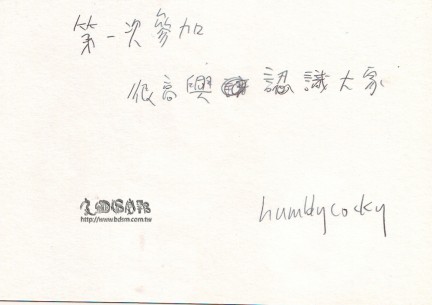 第一次參加
很高興 認識大家
humblycocky
http://www.bdsm.com.tw